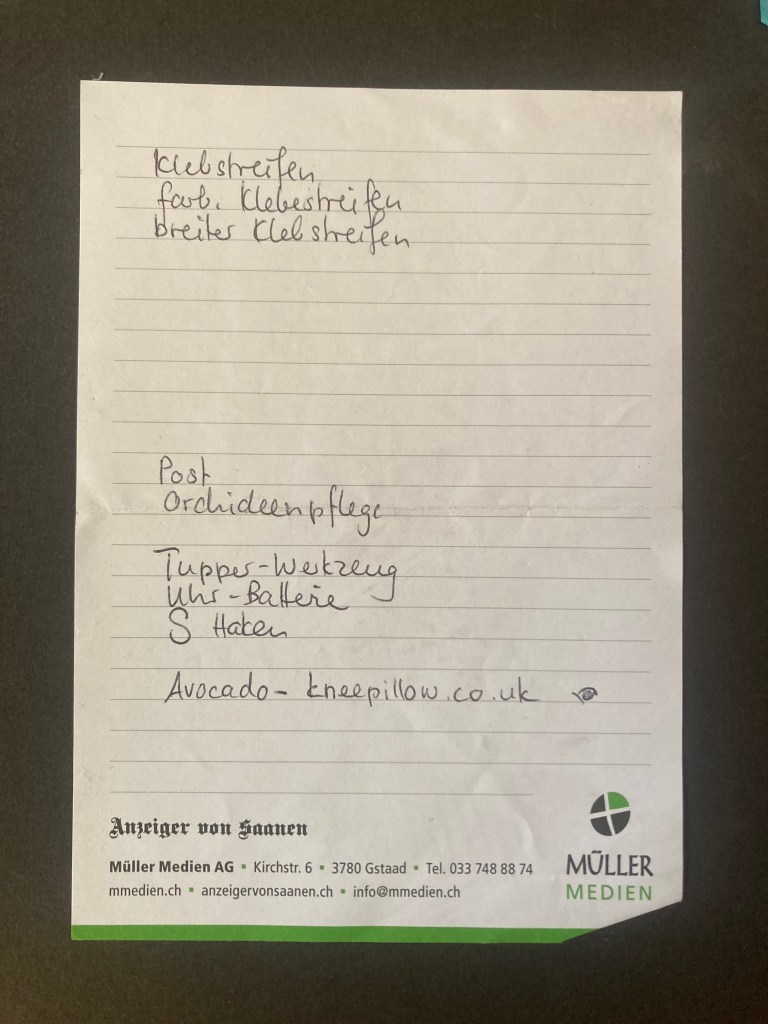 Klebstreifen
farb. Klebestreifen
breiter Klebstreifen
Post
Orchideenpflege
Tupper-Werkzeug
Uhr-Batterie
S Haken
Avocado- kneepillow.co.uk
Anzeiger von Saanen
Müller Medien AG ▪ Kirchstr. 6 ▪ 3780 Gstaad ▪ Tel. 033 748 88 74
mmedien.ch ▪ anzeigervonsaanen.ch ▪ info@mmedien.ch
MÜLLER
MEDIEN